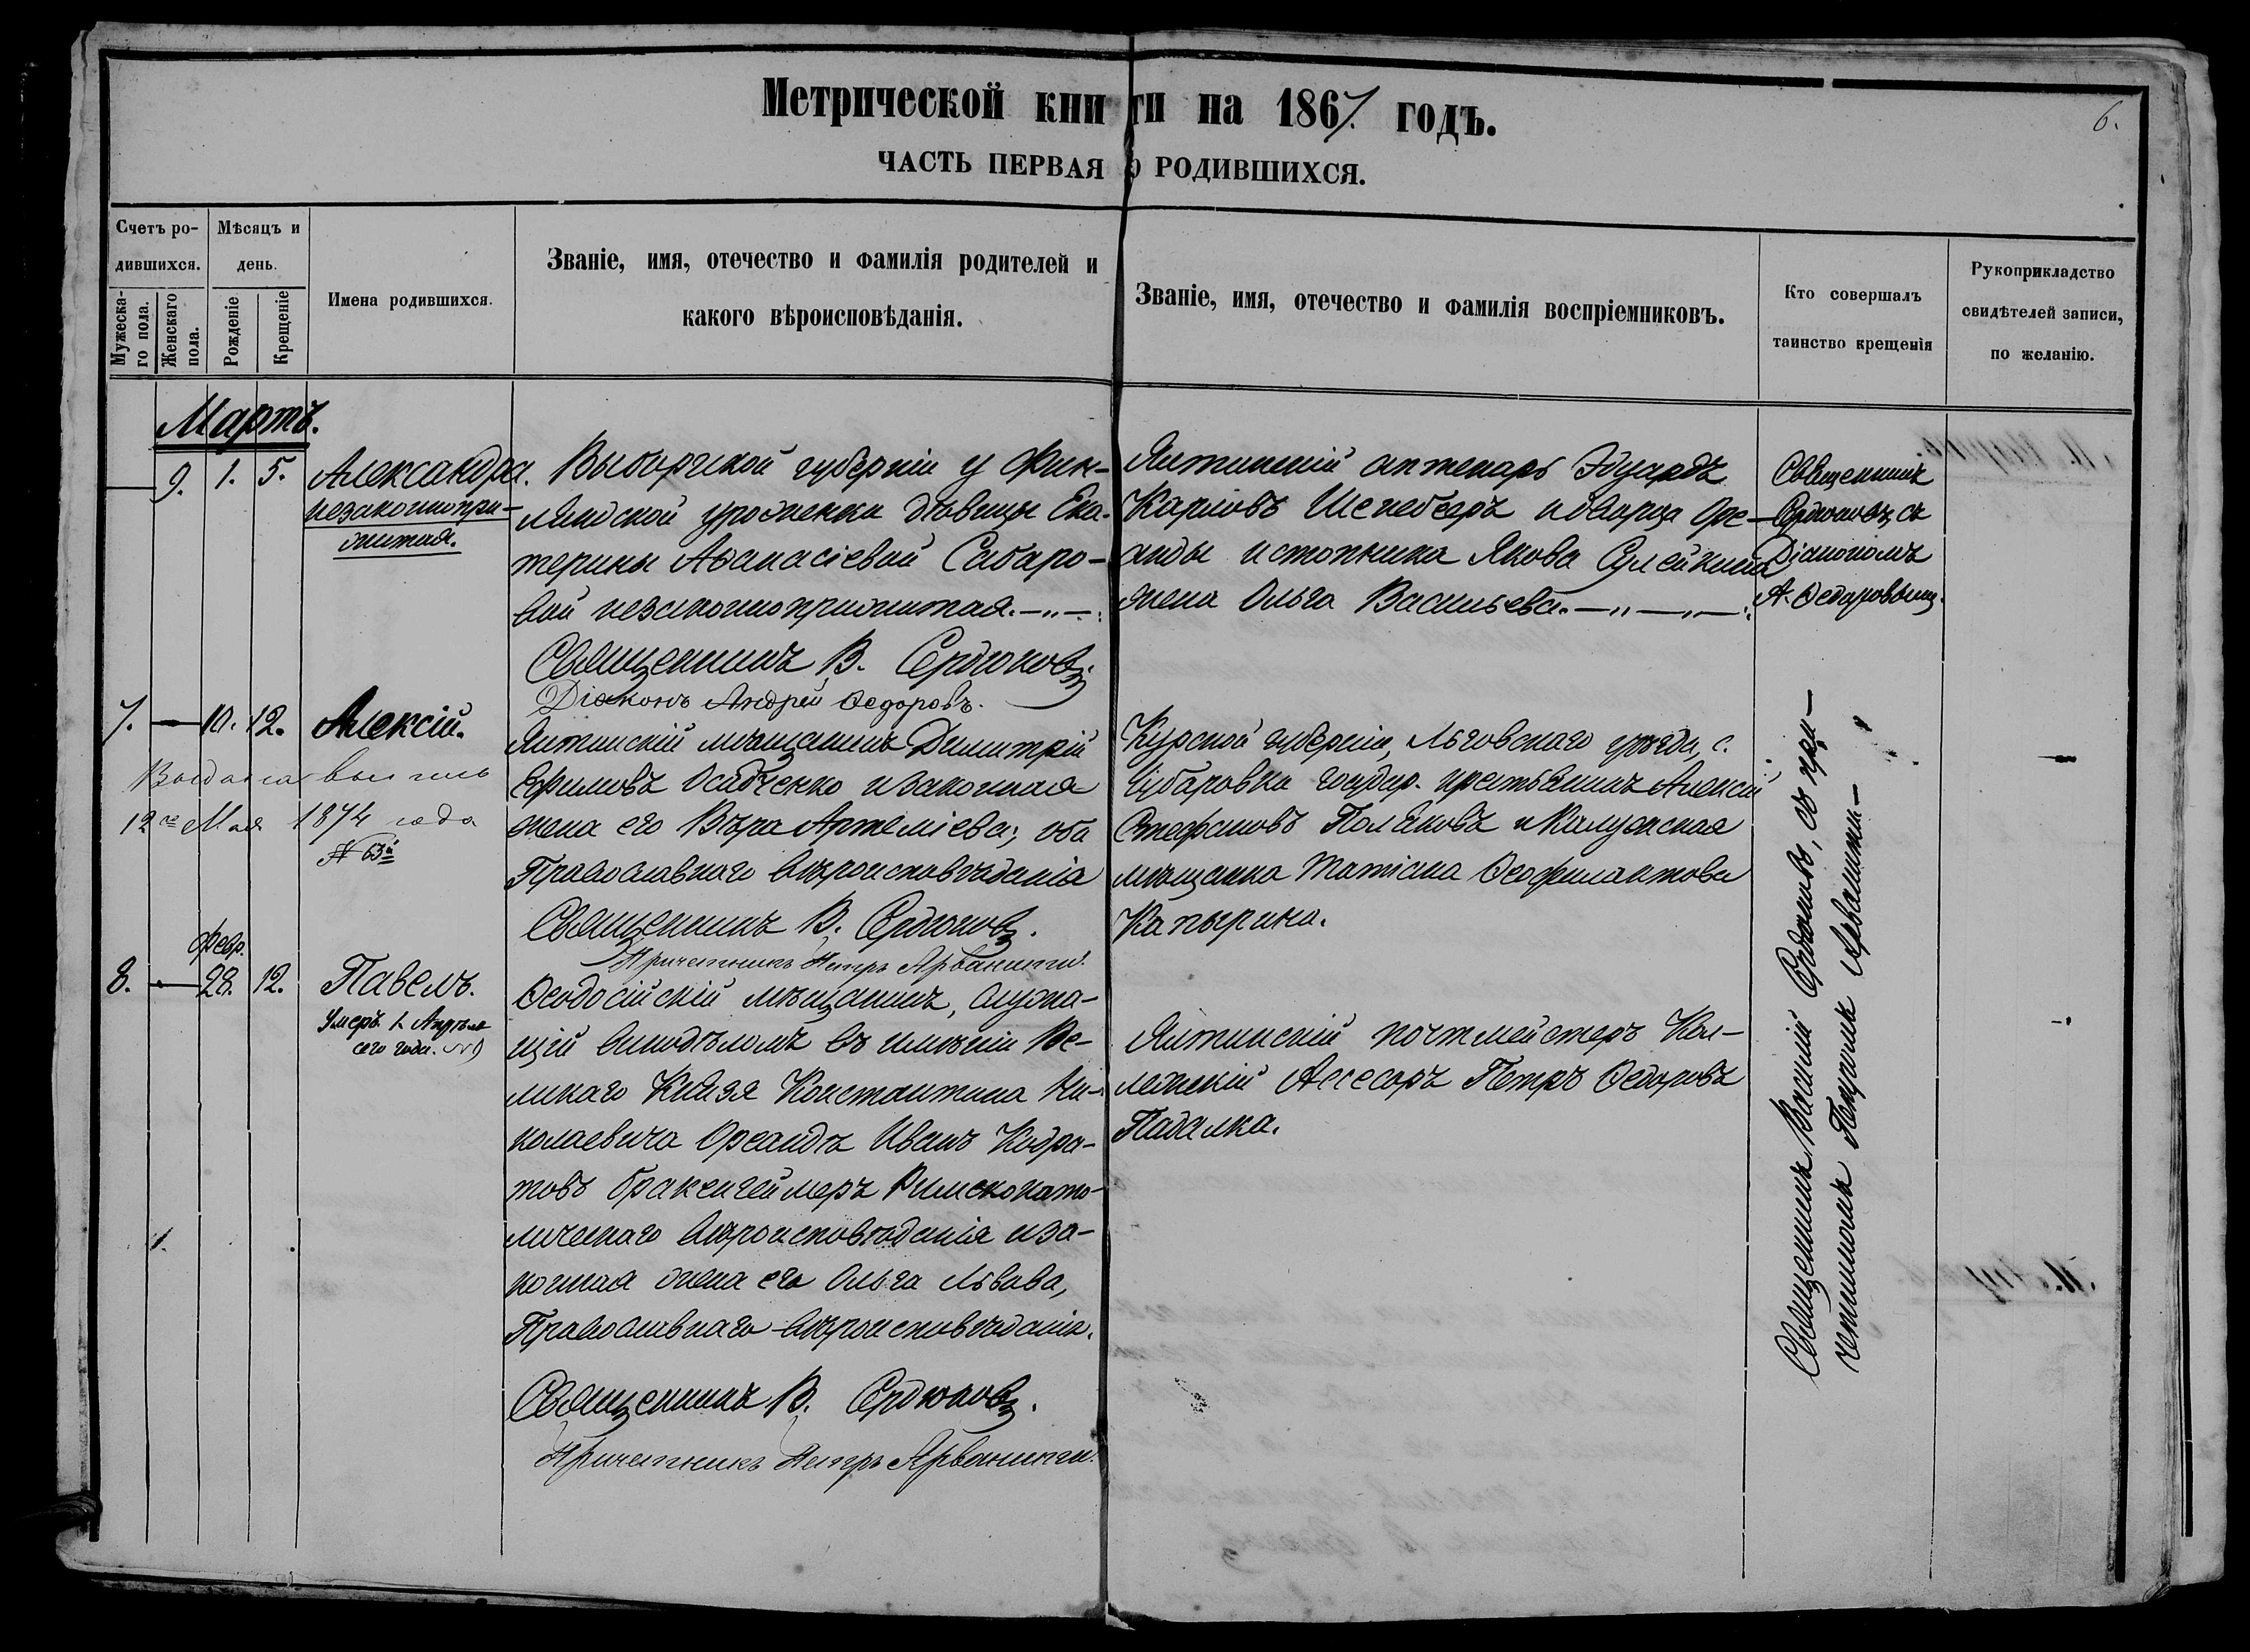 Метрической книги на 1867. годъ.
6.
ЧАСТЬ ПЕРВАЯ О РОДИВШИХСЯ.
Счетъ ро-
дившихся.
Мужеска-
го пола.
Женскаго
пола.
Мѣсяцъ и
день.
Рожденіе
Крещеніе
Имена родившихся.
Званіе, имя, отечество и фамилія родителей и
какого вѣроисповѣданія.
Званіе, имя, отечество и фамилія воспріемниковъ.
Кто совершалъ
таинство крещенія
Рукоприкладство
свидѣтелей записи,
по желанію.
Мартъ.
— 9. 1. 5. Александра.
незаконнопри-
житая.
Выборгской губерніи у Фин-
ляндской уроженки дѣвицы Ека-
терины Аѳанасіевой Сабаро-
вой незаконноприжитая.—„—
Священникъ В. Сердюковъ.
Діаконъ Андрей Ѳедоровъ.
Ялтинскій аптекарь Эдуардъ
Карловъ Шенебергъ и дворца Оре-
анды истопника Якова Сулейкина
жена Ольга Васильева.—„—„—
Священникъ
Сердюковъ съ
Діакономъ
А. Ѳедоровымъ.
7. — 10. 12. Алексій.
Выдана выпись
12го Мая 1874 года
№ 63й
Ялтинскій мѣщанинъ Димитрій
Ефимовъ Осадченко и законная
жена его Вѣра Артеміева; оба
Православнаго вѣроисповѣданія
Священникъ В. Сердюковъ.
Причетникъ Петръ Арванити.
Курской губерніи, Льговскаго уѣзда, с.
Цубаровки государ. крестьянинъ Алексій
Стефановъ Поляковъ и Калужская
мѣщанка Татіана Ѳеофилактова
Капырина.
Февр.
8. — 28. 12. Павелъ.
Умеръ 1. Апрѣля
сего года. №9
Ѳеодосійскій мѣщанинъ, служа-
щій винодѣломъ въ имѣніи Ве-
ликаго Князя Константина Ни-
колаевича Ореандѣ Иванъ Кодра-
товъ Бракенгеймеръ Римскокато-
лическаго вѣроисповѣданія и за-
конная жена его Ольга Львова,
Православнаго вѣроисповѣданія.
Священникъ В. Сердюковъ.
Причетникъ Петръ Арванити.
Ялтинскій почтмейстеръ Кол-
лежскій Ассесоръ Петръ Ѳедоровъ
Падалка.
Священникъ Василій Сердюковъ, съ при-
четникомъ Петромъ Арванити—